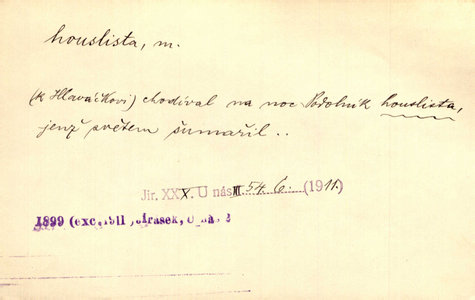 houslista, m.
(k Hlaváčkovi) chodíval na noc Podolník houslista,
jenž světem šumařil..
Jir. XXX. U nás III 54. 6. (1911.)
1899 (exc. 1911 Jirasek, U nás 2